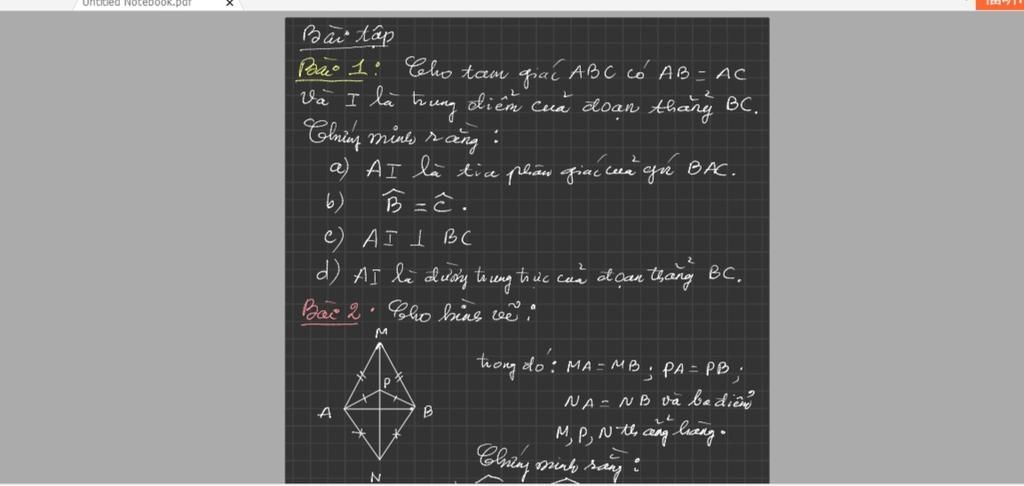 Untitled Notebook.pdf x
Bài tập
Bài 1: Cho tam giác ABC có AB = AC
và I là trung điểm của đoạn thẳng BC.
Chứng minh rằng:
a) AI là tia phân giác của góc BAC.
b) B̂ = Ĉ.
c) AI ⊥ BC
d) AI là đường trung trực của đoạn thẳng BC.
Bài 2. Cho hình vẽ:
M
P
A
B
N
trong đó: MA = MB; PA = PB;
NA = NB và ba điểm
M, P, N thẳng hàng.
Chứng minh rằng: